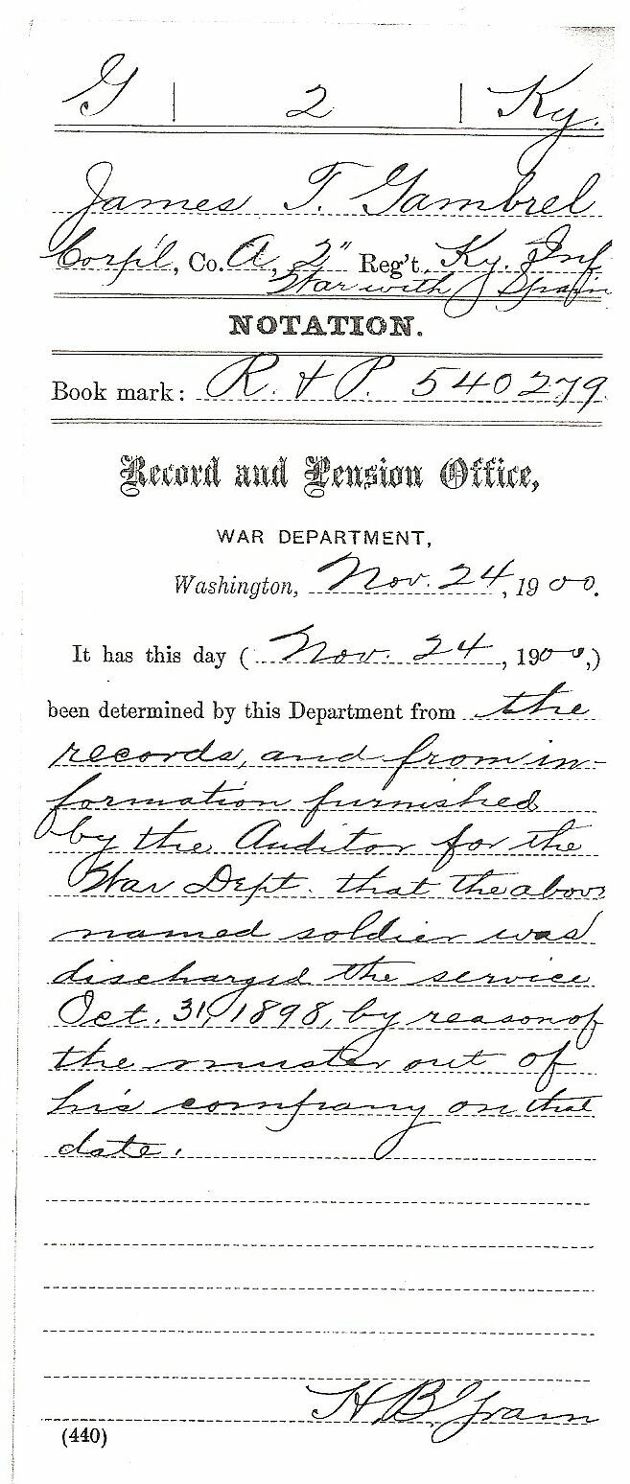 G | 2 | Ky.
James T. Gambrel
Corp'l, Co. A, 2" Reg't. Ky. Inf
War with Spain
NOTATION.
Book mark: R. & P. 540279
Record and Pension Office,
WAR DEPARTMENT,
Washington, Nov. 24, 1900.
It has this day (Nov. 24, 1900,)
been determined by this Department from the
records, and from in-
formation furnished
by the Auditor for the
War Dept. that the above
named soldier was
discharged the service
Oct. 31, 1898, by reason of
the muster out of
his company on that
date.
H. B.
(440)